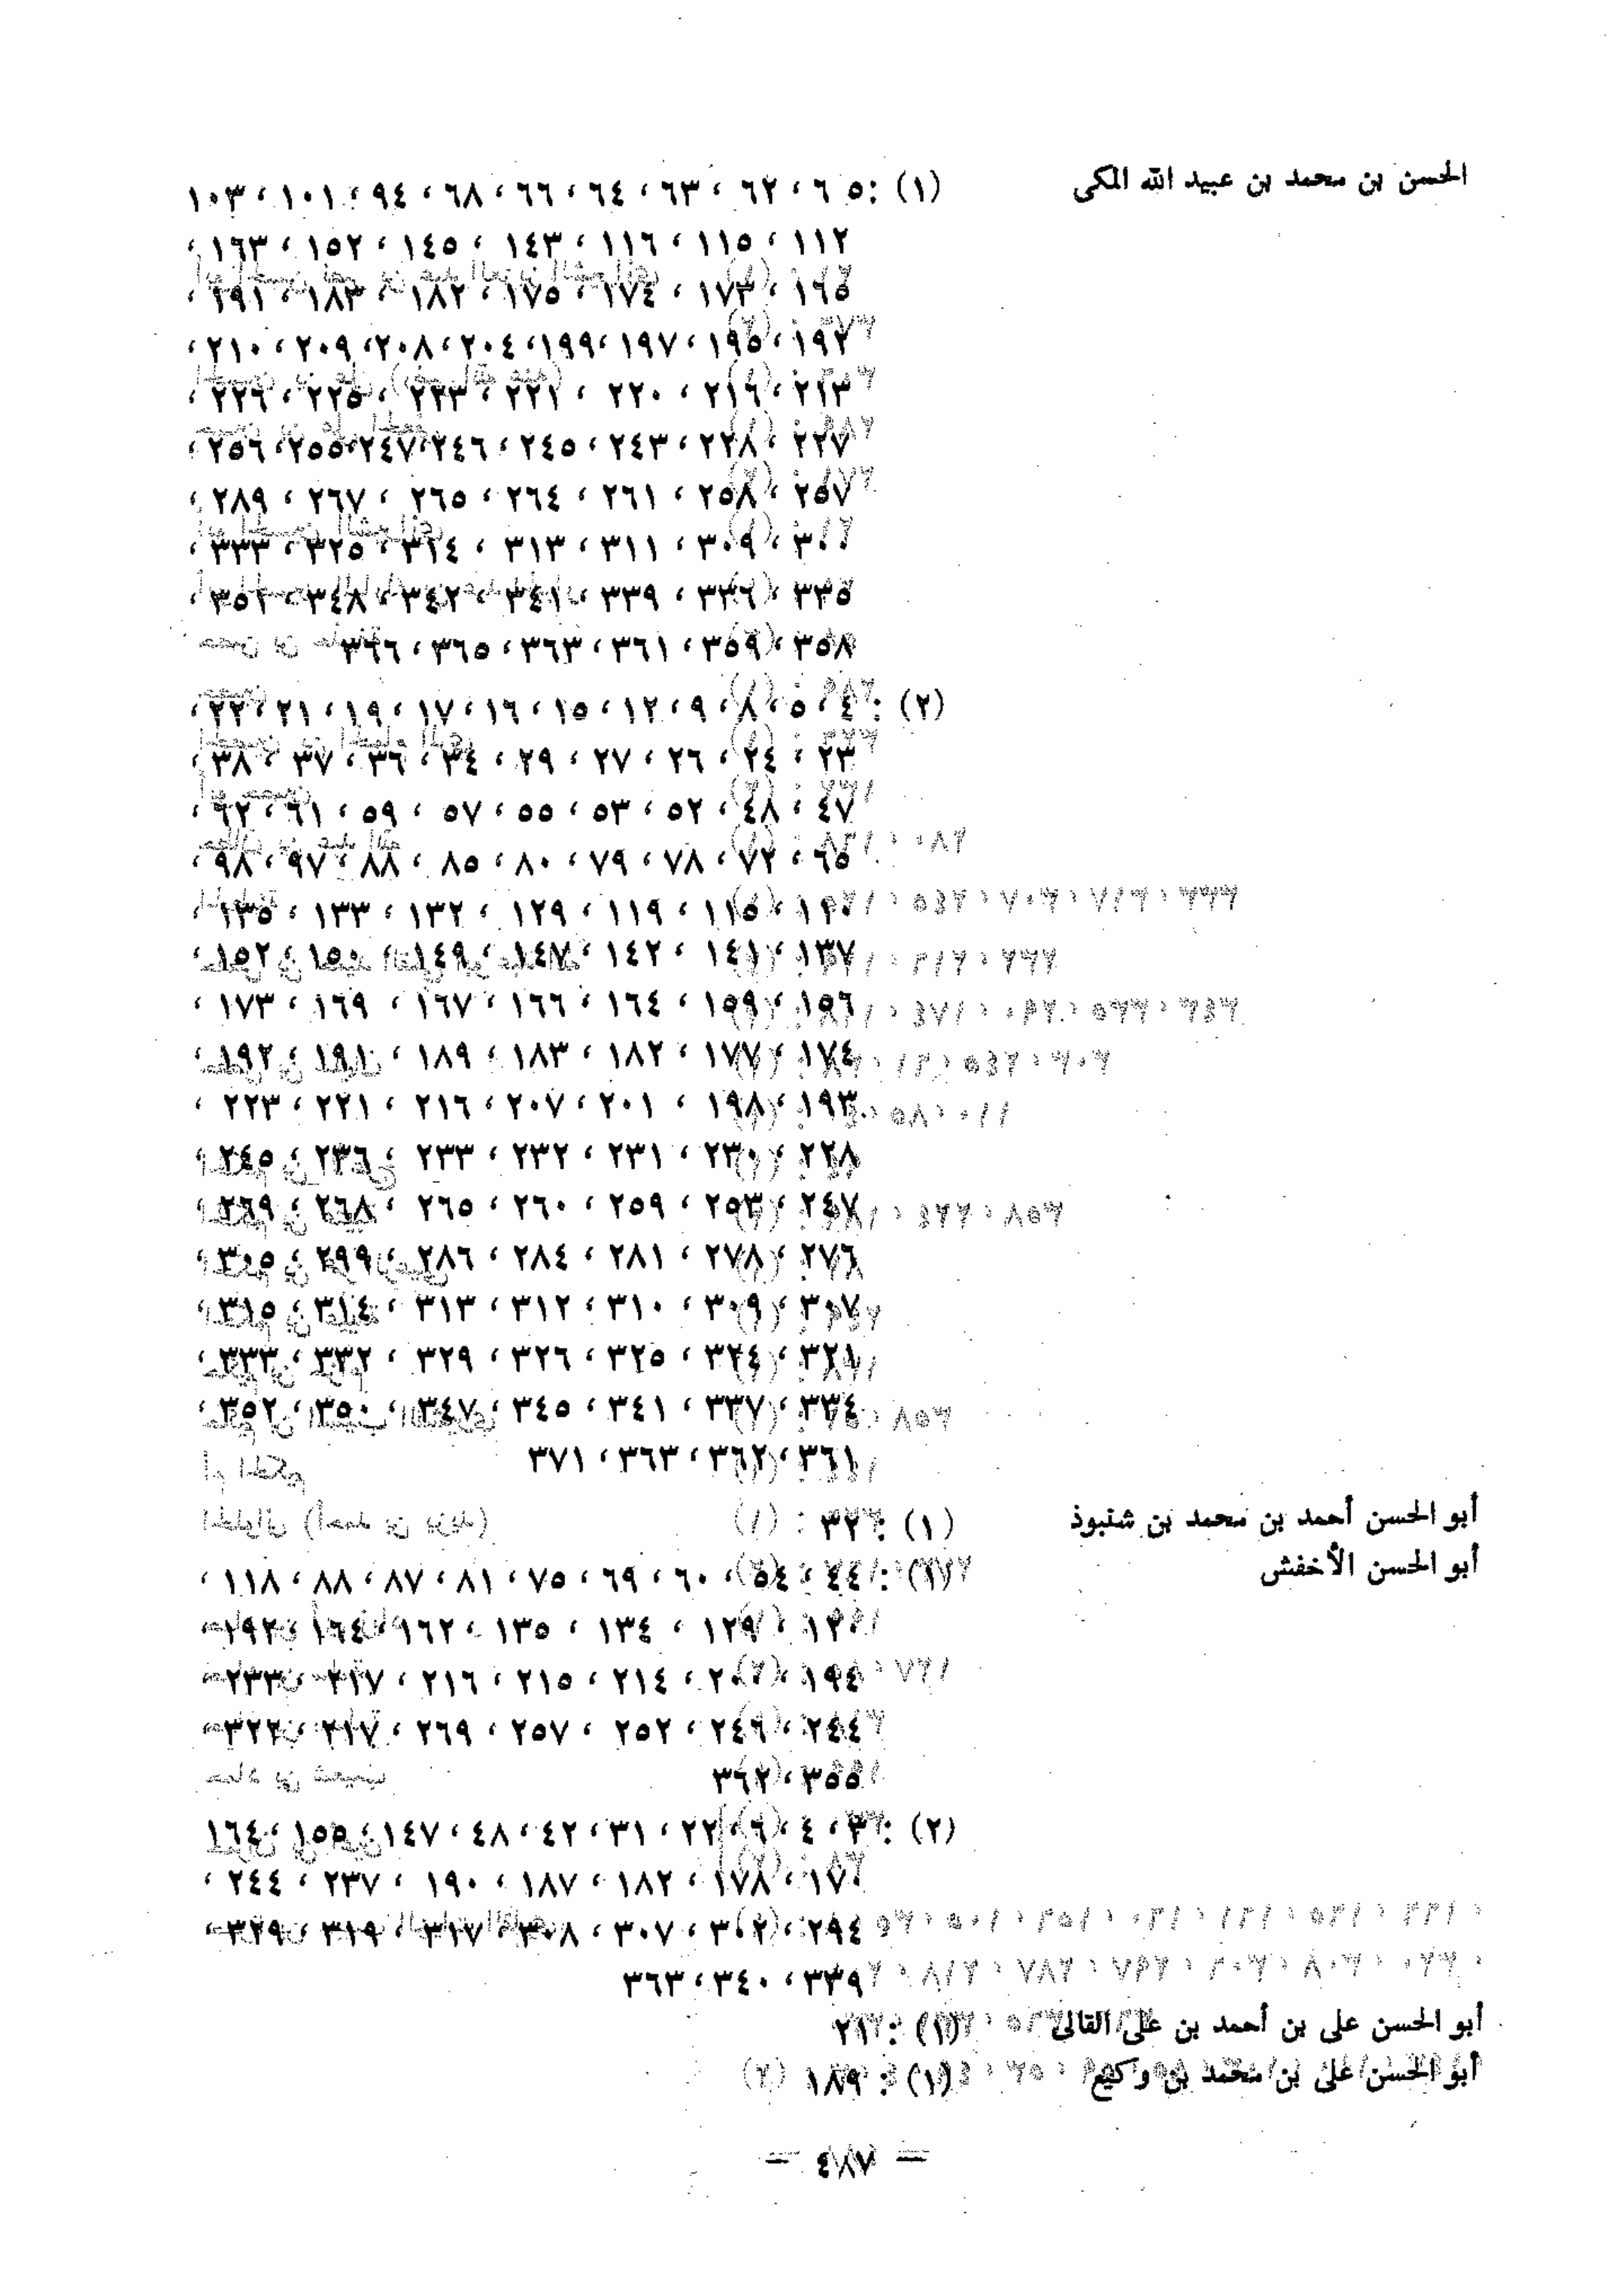 الحسن بن محمد بن عبيد الله المكى (١) : ٥ ٦ ، ٦٢ ، ٦٣ ، ٦٤ ، ٦٦ ، ٦٨ ، ٩٤ ، ١٠١ ، ١٠٣
١١٢ ، ١١٥ ، ١١٦ ، ١٤٣ ، ١٤٥ ، ١٥٢ ، ١٦٣ ،
١٦٥ ، ١٧٣ ، ١٧٤ ، ١٧٥ ، ١٨٢ ، ١٨٣ ، ١٩١ ،
١٩٢ ، ١٩٥ ، ١٩٧ ، ١٩٩ ، ٢٠٤ ، ٢٠٨ ، ٢٠٩ ، ٢١٠ ،
٢١٣ ، ٢١٦ ، ٢٢٠ ، ٢٢١ ، ٢٢٣ ، ٢٢٥ ، ٢٢٦ ،
٢٢٧ ، ٢٢٨ ، ٢٤٣ ، ٢٤٥ ، ٢٤٦ ، ٢٤٧ ، ٢٥٥ ، ٢٥٦ ،
٢٥٧ ، ٢٥٨ ، ٢٦١ ، ٢٦٤ ، ٢٦٥ ، ٢٦٧ ، ٢٨٩ ،
٣٠٠ ، ٣٠٩ ، ٣١١ ، ٣١٣ ، ٣١٤ ، ٣٢٥ ، ٣٣٣ ،
٣٣٥ ، ٣٣٦ ، ٣٣٩ ، ٣٤١ ، ٣٤٢ ، ٣٤٨ ، ٣٥٢ ،
٣٥٨ ، ٣٥٩ ، ٣٦١ ، ٣٦٣ ، ٣٦٥ ، ٣٦٦
(٢) : ٤ ، ٥ ، ٨ ، ٩ ، ١٢ ، ١٥ ، ١٦ ، ١٧ ، ١٩ ، ٢١ ، ٢٢ ،
٢٣ ، ٢٤ ، ٢٦ ، ٢٧ ، ٢٩ ، ٣٤ ، ٣٦ ، ٣٧ ، ٣٨ ،
٤٧ ، ٤٨ ، ٥٢ ، ٥٣ ، ٥٥ ، ٥٧ ، ٥٩ ، ٦١ ، ٦٢ ،
٦٥ ، ٧٢ ، ٧٨ ، ٧٩ ، ٨٠ ، ٨٥ ، ٨٨ ، ٩٧ ، ٩٨ ،
١١٥ ، ١١٩ ، ١٢٩ ، ١٣٢ ، ١٣٣ ، ١٣٥ ،
١٣٧ ، ١٤١ ، ١٤٢ ، ١٤٧ ، ١٤٩ ، ١٥٠ ، ١٥٢ ،
١٥٦ ، ١٥٩ ، ١٦٤ ، ١٦٦ ، ١٦٧ ، ١٦٩ ، ١٧٣ ،
١٧٤ ، ١٧٧ ، ١٨٢ ، ١٨٣ ، ١٨٩ ، ١٩١ ، ١٩٢ ،
١٩٣ ، ١٩٨ ، ٢٠١ ، ٢٠٧ ، ٢١٦ ، ٢٢١ ، ٢٢٣ ،
٢٢٨ ، ٢٣٠ ، ٢٣١ ، ٢٣٢ ، ٢٣٣ ، ٢٣٦ ، ٢٤٥ ،
٢٤٧ ، ٢٥٣ ، ٢٥٩ ، ٢٦٠ ، ٢٦٥ ، ٢٦٨ ، ٢٦٩ ،
٢٧٦ ، ٢٧٨ ، ٢٨١ ، ٢٨٤ ، ٢٨٦ ، ٢٩٩ ، ٣٠٥ ،
٣٠٧ ، ٣٠٩ ، ٣١٠ ، ٣١٢ ، ٣١٣ ، ٣١٤ ، ٣١٥ ،
٣٢١ ، ٣٢٤ ، ٣٢٥ ، ٣٢٦ ، ٣٢٩ ، ٣٣٢ ، ٣٣٣ ،
٣٣٤ ، ٣٣٧ ، ٣٤١ ، ٣٤٥ ، ٣٤٧ ، ٣٥٠ ، ٣٥٢ ،
٣٦١ ، ٣٦٢ ، ٣٦٣ ، ٣٧١
أبو الحسن أحمد بن محمد بن شنبوذ (١) :
أبو الحسن الأخفش (١) : ٤٤ ، ٥٤ ، ٦٠ ، ٦٩ ، ٧٥ ، ٨١ ، ٨٧ ، ٨٨ ، ١١٨ ،
١٢٠ ، ١٢٩ ، ١٣٤ ، ١٣٥ ، ١٦٢ ، ١٦٤ ، ١٩٢
١٩٤ ، ٢٠٢ ، ٢١٤ ، ٢١٥ ، ٢١٦ ، ٢١٧ ، ٢٣٣
٢٤٤ ، ٢٤٦ ، ٢٥٢ ، ٢٥٧ ، ٢٦٩ ،
٣٥٥ ، ٣٦٢
(٢) : ٣ ، ٤ ، ٦ ، ٢٢ ، ٣١ ، ٤٢ ، ٤٨ ، ١٤٧ ، ١٥٥ ، ١٦٤
١٧٠ ، ١٧٨ ، ١٨٢ ، ١٨٧ ، ١٩٠ ، ٢٣٧ ، ٢٤٤ ،
٢٩٤ ، ٣٠٢ ، ٣٠٧ ، ٣٠٨ ، ٣١٧ ، ٣١٩ ، ٣٢٩ ،
٣٣٩ ، ٣٤٠ ، ٣٦٣
أبو الحسن على بن أحمد بن على القالى (١) : ٢١
أبو الحسن على بن محمد بن وكيع (١) : ١٨٩
— ٤٨٧ —